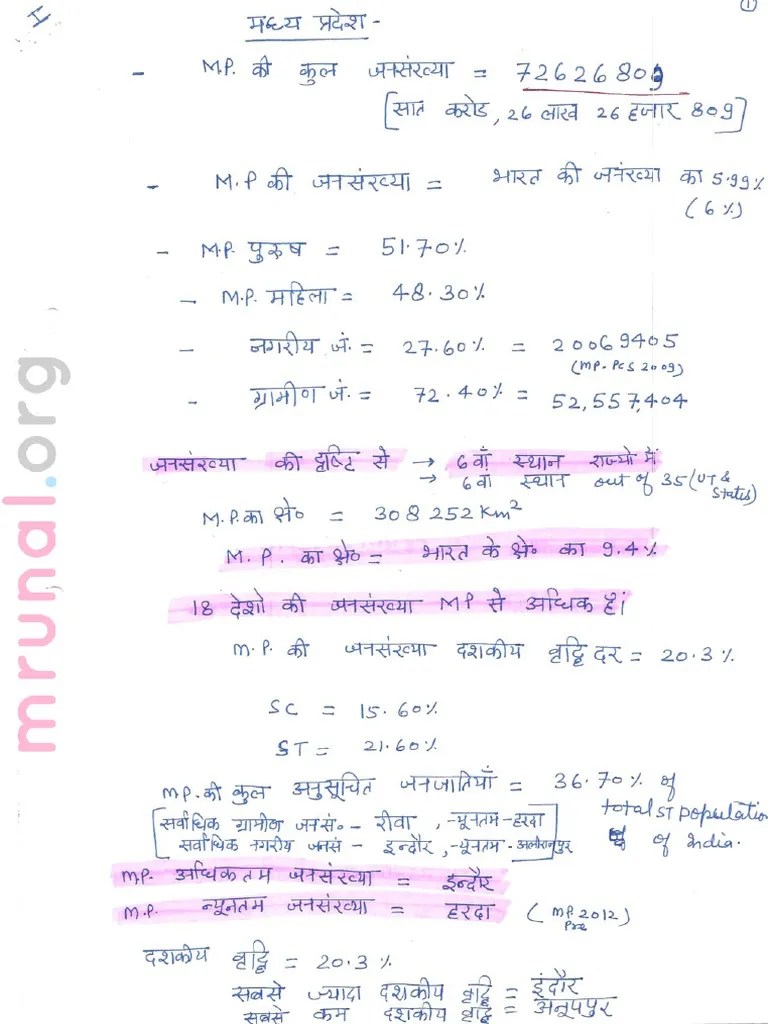 I
①
मध्य प्रदेश -
- M.P. की कुल जनसंख्या = 72626809
[सात करोड, 26 लाख 26 हजार 809]
- M.P की जनसंख्या = भारत की जनंख्या का 5.99%
(6%)
- M.P. पुरुष = 51.70%
- M.P. महिला = 48.30%
- नगरीय जं. = 27.60% = 20069405
(MP-PCS 2009)
- ग्रामीण जं. = 72.40% = 52,557,404
जनसंख्या की दृष्टि से → 6वाँ स्थान राज्यो में
→ 6वा स्थान out of 35 (UT & States)
M.P. का क्षे० = 308252 Km²
M.P. का क्षे० = भारत के क्षे० का 9.4%
18 देशो की जनसंख्या MP से अधिक है।
M.P. की जनसंख्या दशकीय वृद्धि दर = 20.3%
SC = 15.60%
ST = 21.60%
M.P. की कुल अनुसूचित जनजातियाँ = 36.70% of total ST population of India.
[सर्वाधिक ग्रामीण जनसं०- रीवा, न्यूनतम-हरदा
सर्वाधिक नगरीय जनसं - इन्दौर, न्यूनतम-अलीराजपुर]
M.P. अधिकतम जनसंख्या = इन्दौर
M.P. न्यूनतम जनसंख्या = हरदा (MP 2012 Pre)
दशकीय वृद्धि = 20.3%
सबसे ज्यादा दशकीय वृद्धि = इंदौर
सबसे कम दशकीय वृद्धि = अनूपपुर
mrunal.org